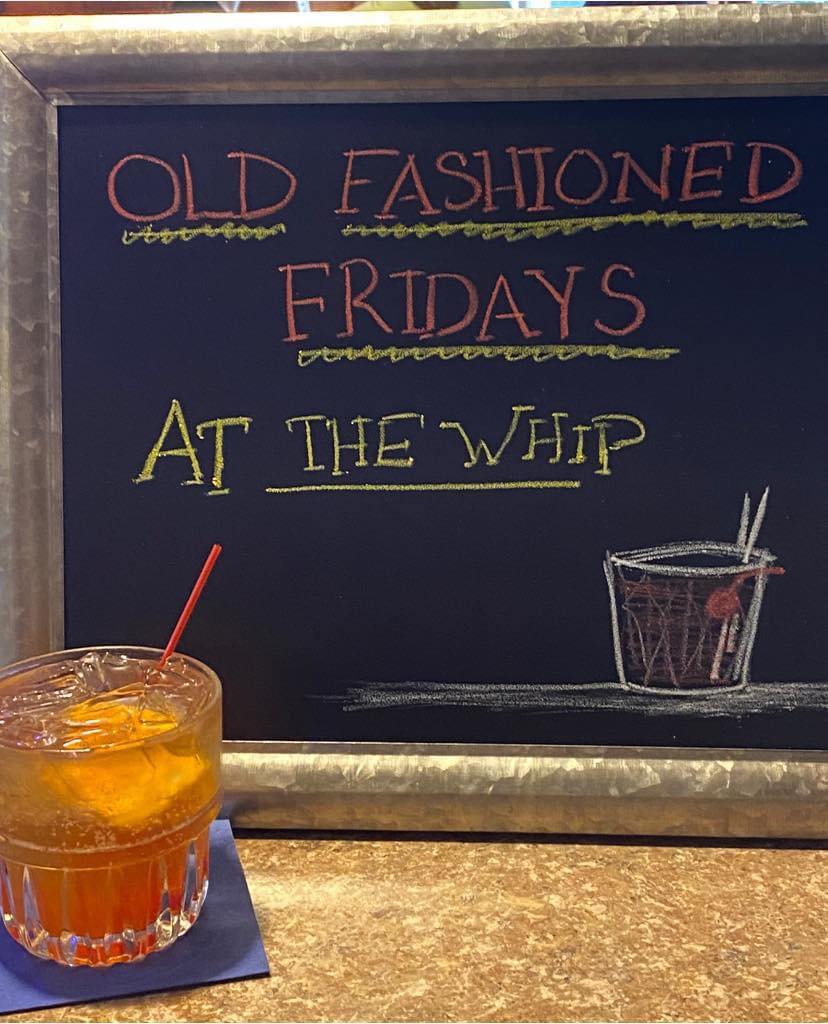 OLD FASHIONED
FRIDAYS
AT THE WHIP